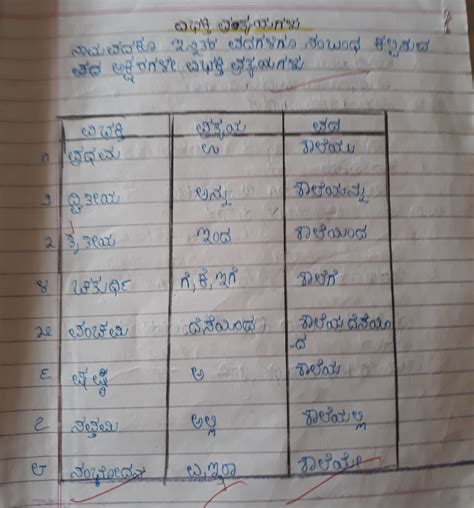 ವಿಭಕ್ತಿ ಪ್ರತ್ಯಯಗಳು
ನಾಮಪದಕೂ ಇನ್ನಿತರ ಪದಗಳಿಗೂ ಸಂಬಂಧ ಕಲ್ಪಿಸುವ
ಪದ ಅಕ್ಷರಗಳೇ ವಿಭಕ್ತಿ ಪ್ರತ್ಯಯಗಳು
ವಿಭಕ್ತಿ ಪ್ರತ್ಯಯ ಪದ
೧ ಪ್ರಥಮ ಉ ಶಾಲೆಯು
೨ ದ್ವಿತೀಯ ಅನ್ನು ಶಾಲೆಯನ್ನು
೩ ತೃತೀಯ ಇಂದ ಶಾಲೆಯಿಂದ
೪ ಚತುರ್ಥಿ ಗೆ, ಕೆ, ಇಗೆ ಶಾಲೆಗೆ
೫ ಪಂಚಮಿ ದೆಸೆಯಿಂದ ಶಾಲೆಯ ದೆಸೆಯಿಂ
ದ
೬ ಷಷ್ಠಿ ಅ ಶಾಲೆಯ
೭ ಸಪ್ತಮಿ ಅಲ್ಲಿ ಶಾಲೆಯಲ್ಲಿ
೮ ಸಂಭೋದನ ಶಾಲೆಯೇ